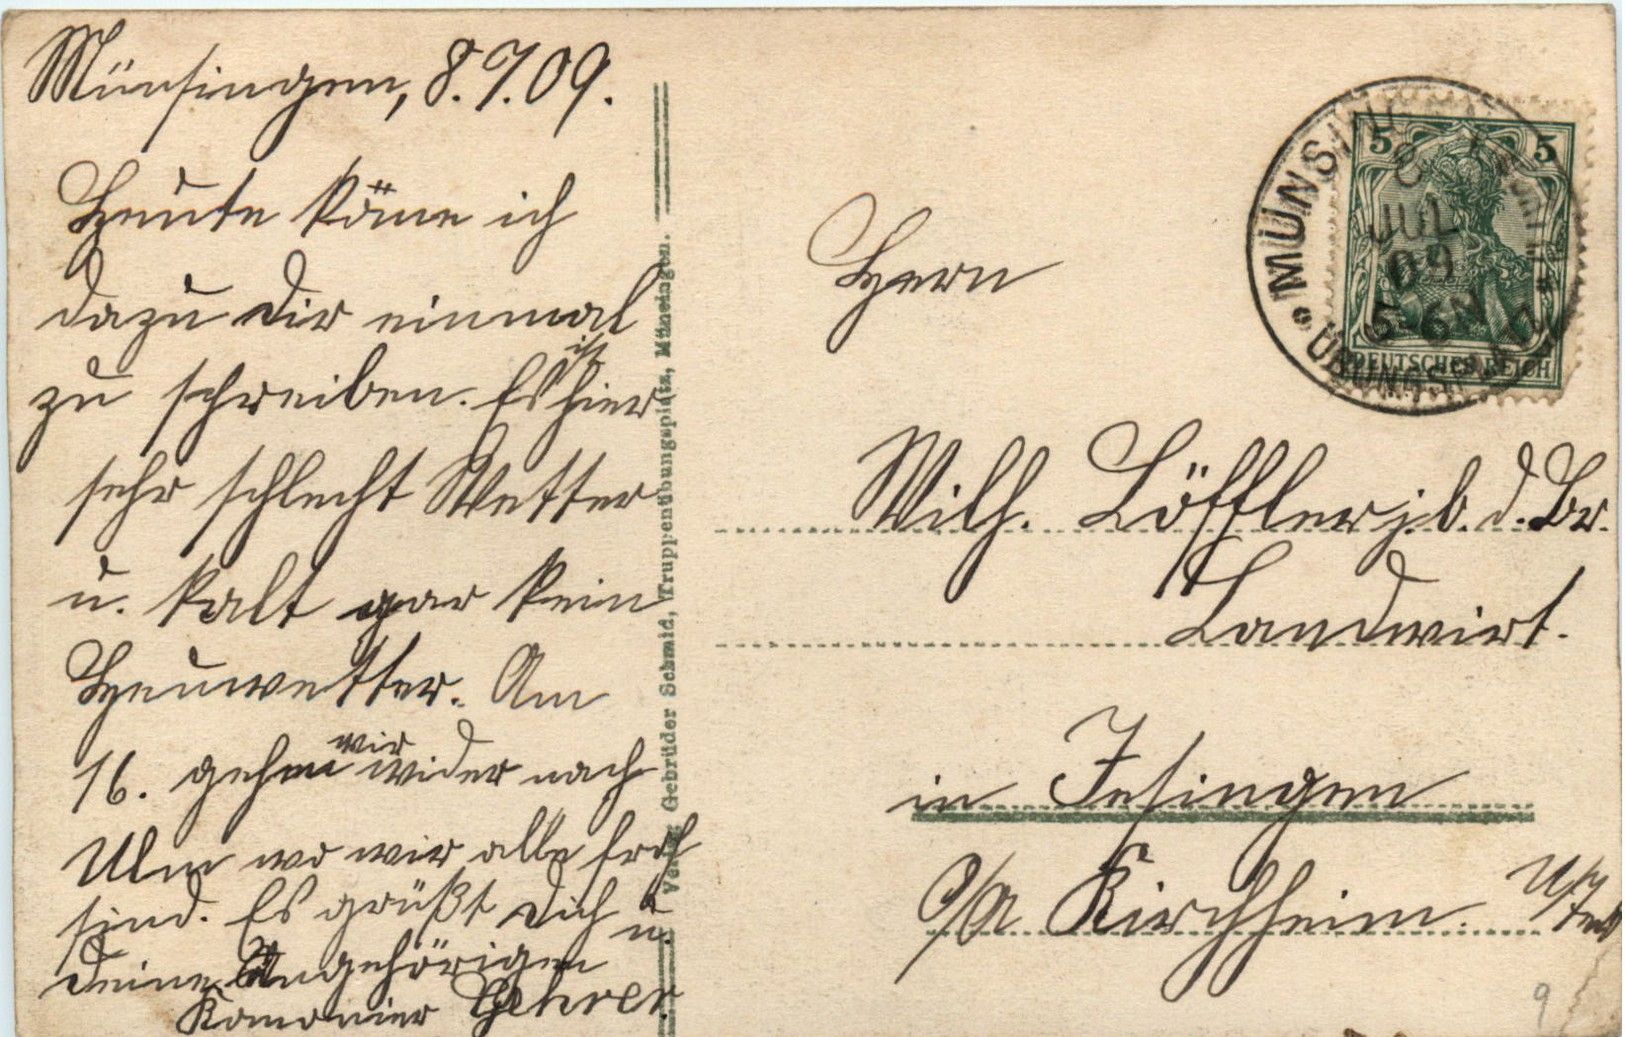 Münsingen, 8.7.09.
Heute käme ich
dazu dir einmal
zu schreiben. Es ist hier
sehr schlecht Wetter
u. kalt gar kein
Heuwetter. Am
16. gehen wir wider nach
Ulm wo wir alle froh
sind. Es grüßt dich u.
deine Angehörigen
Kanonier Gehrer.
Verlag Gebrüder Schmid, Truppenübungsplatz, Münsingen.
MÜNSINGEN
8
JUL
09
5-6N
ÜBUNGSPLATZ
5 5
DEUTSCHES REICH
Herrn
Wilh. Löffler j. b. d. Br.
Landwirt.
in Jesingen
O/A Kirchheim. U/Teck
9